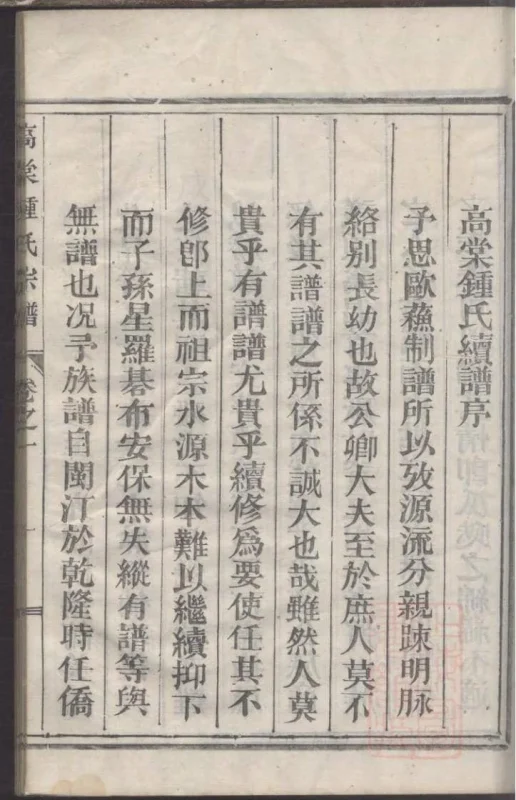 高棠鍾氏續譜序
予思歐蘇制譜所以攷源流分親踈明脉
絡别長幼也故公卿大夫至於庶人莫不
有其譜譜之所係不誠大也哉雖然人莫
貴乎有譜譜尤貴乎續修爲要使任其不
修卽上而祖宗水源木本難以繼續抑下
而子孫星羅碁布安保無失縱有譜等與
無譜也况予族譜自閩汀於乾隆時任僑
高棠鍾氏宗譜 卷之一